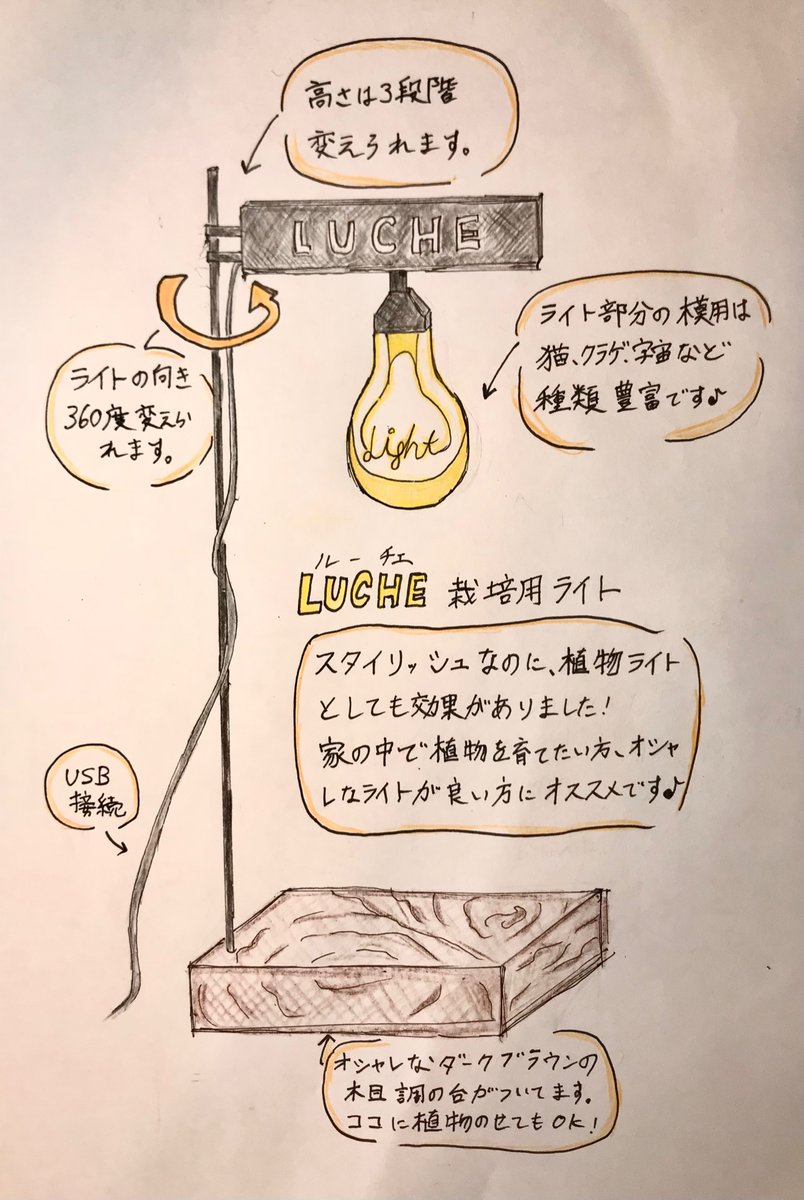 高さは3段階
変えられます。
LUCHE
ライト部分の模用は
猫、クラゲ、宇宙など
種類豊富です♪
ライトの向き
360度変えら
れます。
Light
ルーチェ
LUCHE 栽培用ライト
スタイリッシュなのに、植物ライト
としても効果がありました!
家の中で植物を育てたい方、オシャ
レなライトが良い方にオススメです♪
USB
接続
オシャレなダークブラウンの
木目調の台がついてます。
ココに植物のせてもOK!